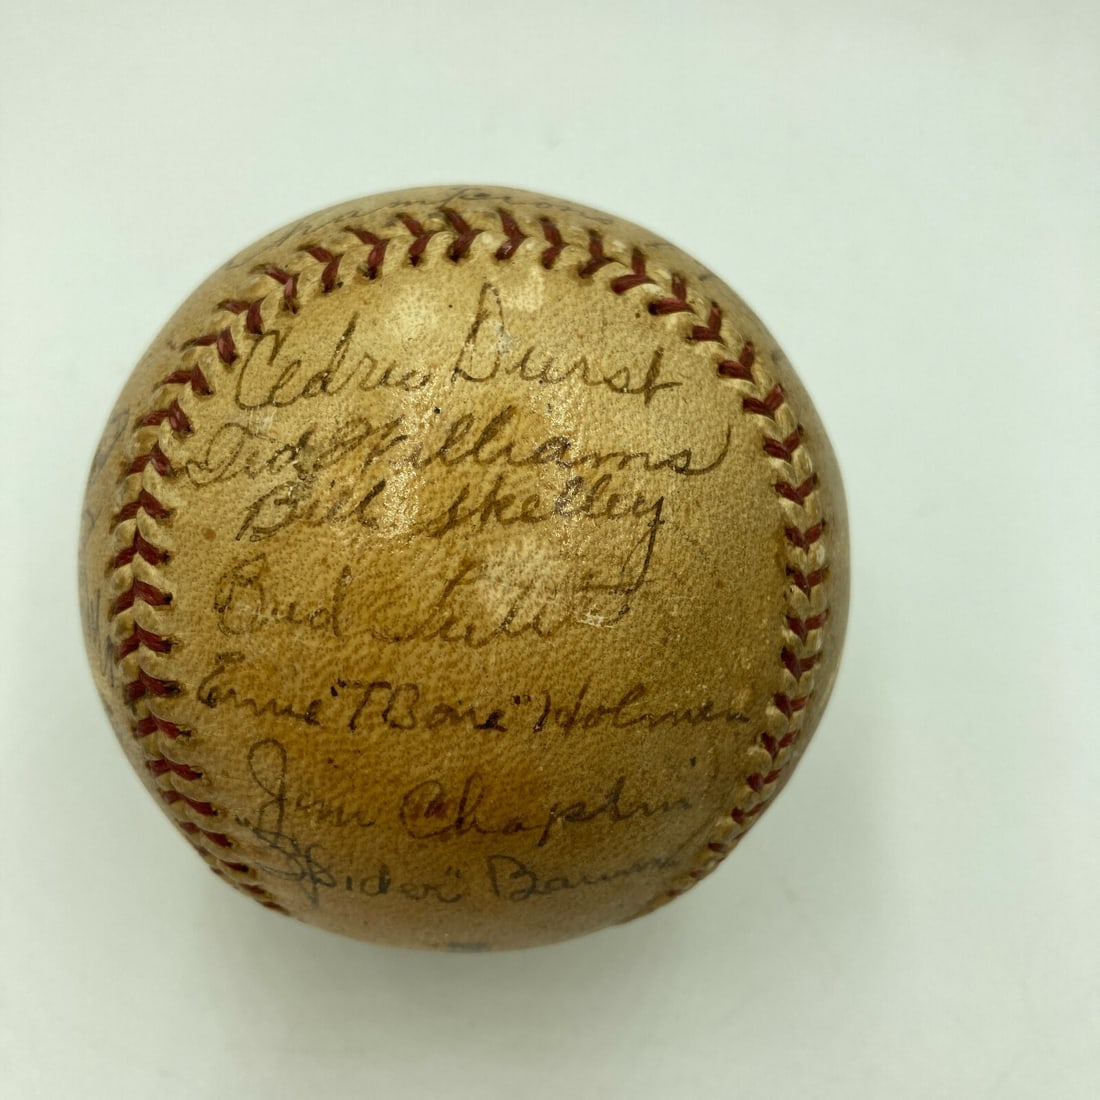 Cedric Durst
Ted Williams
Bill Skelley
Bud Tuttle
Ernie "T Bone" Holman
Jim Chaplin
"Spider" Baum